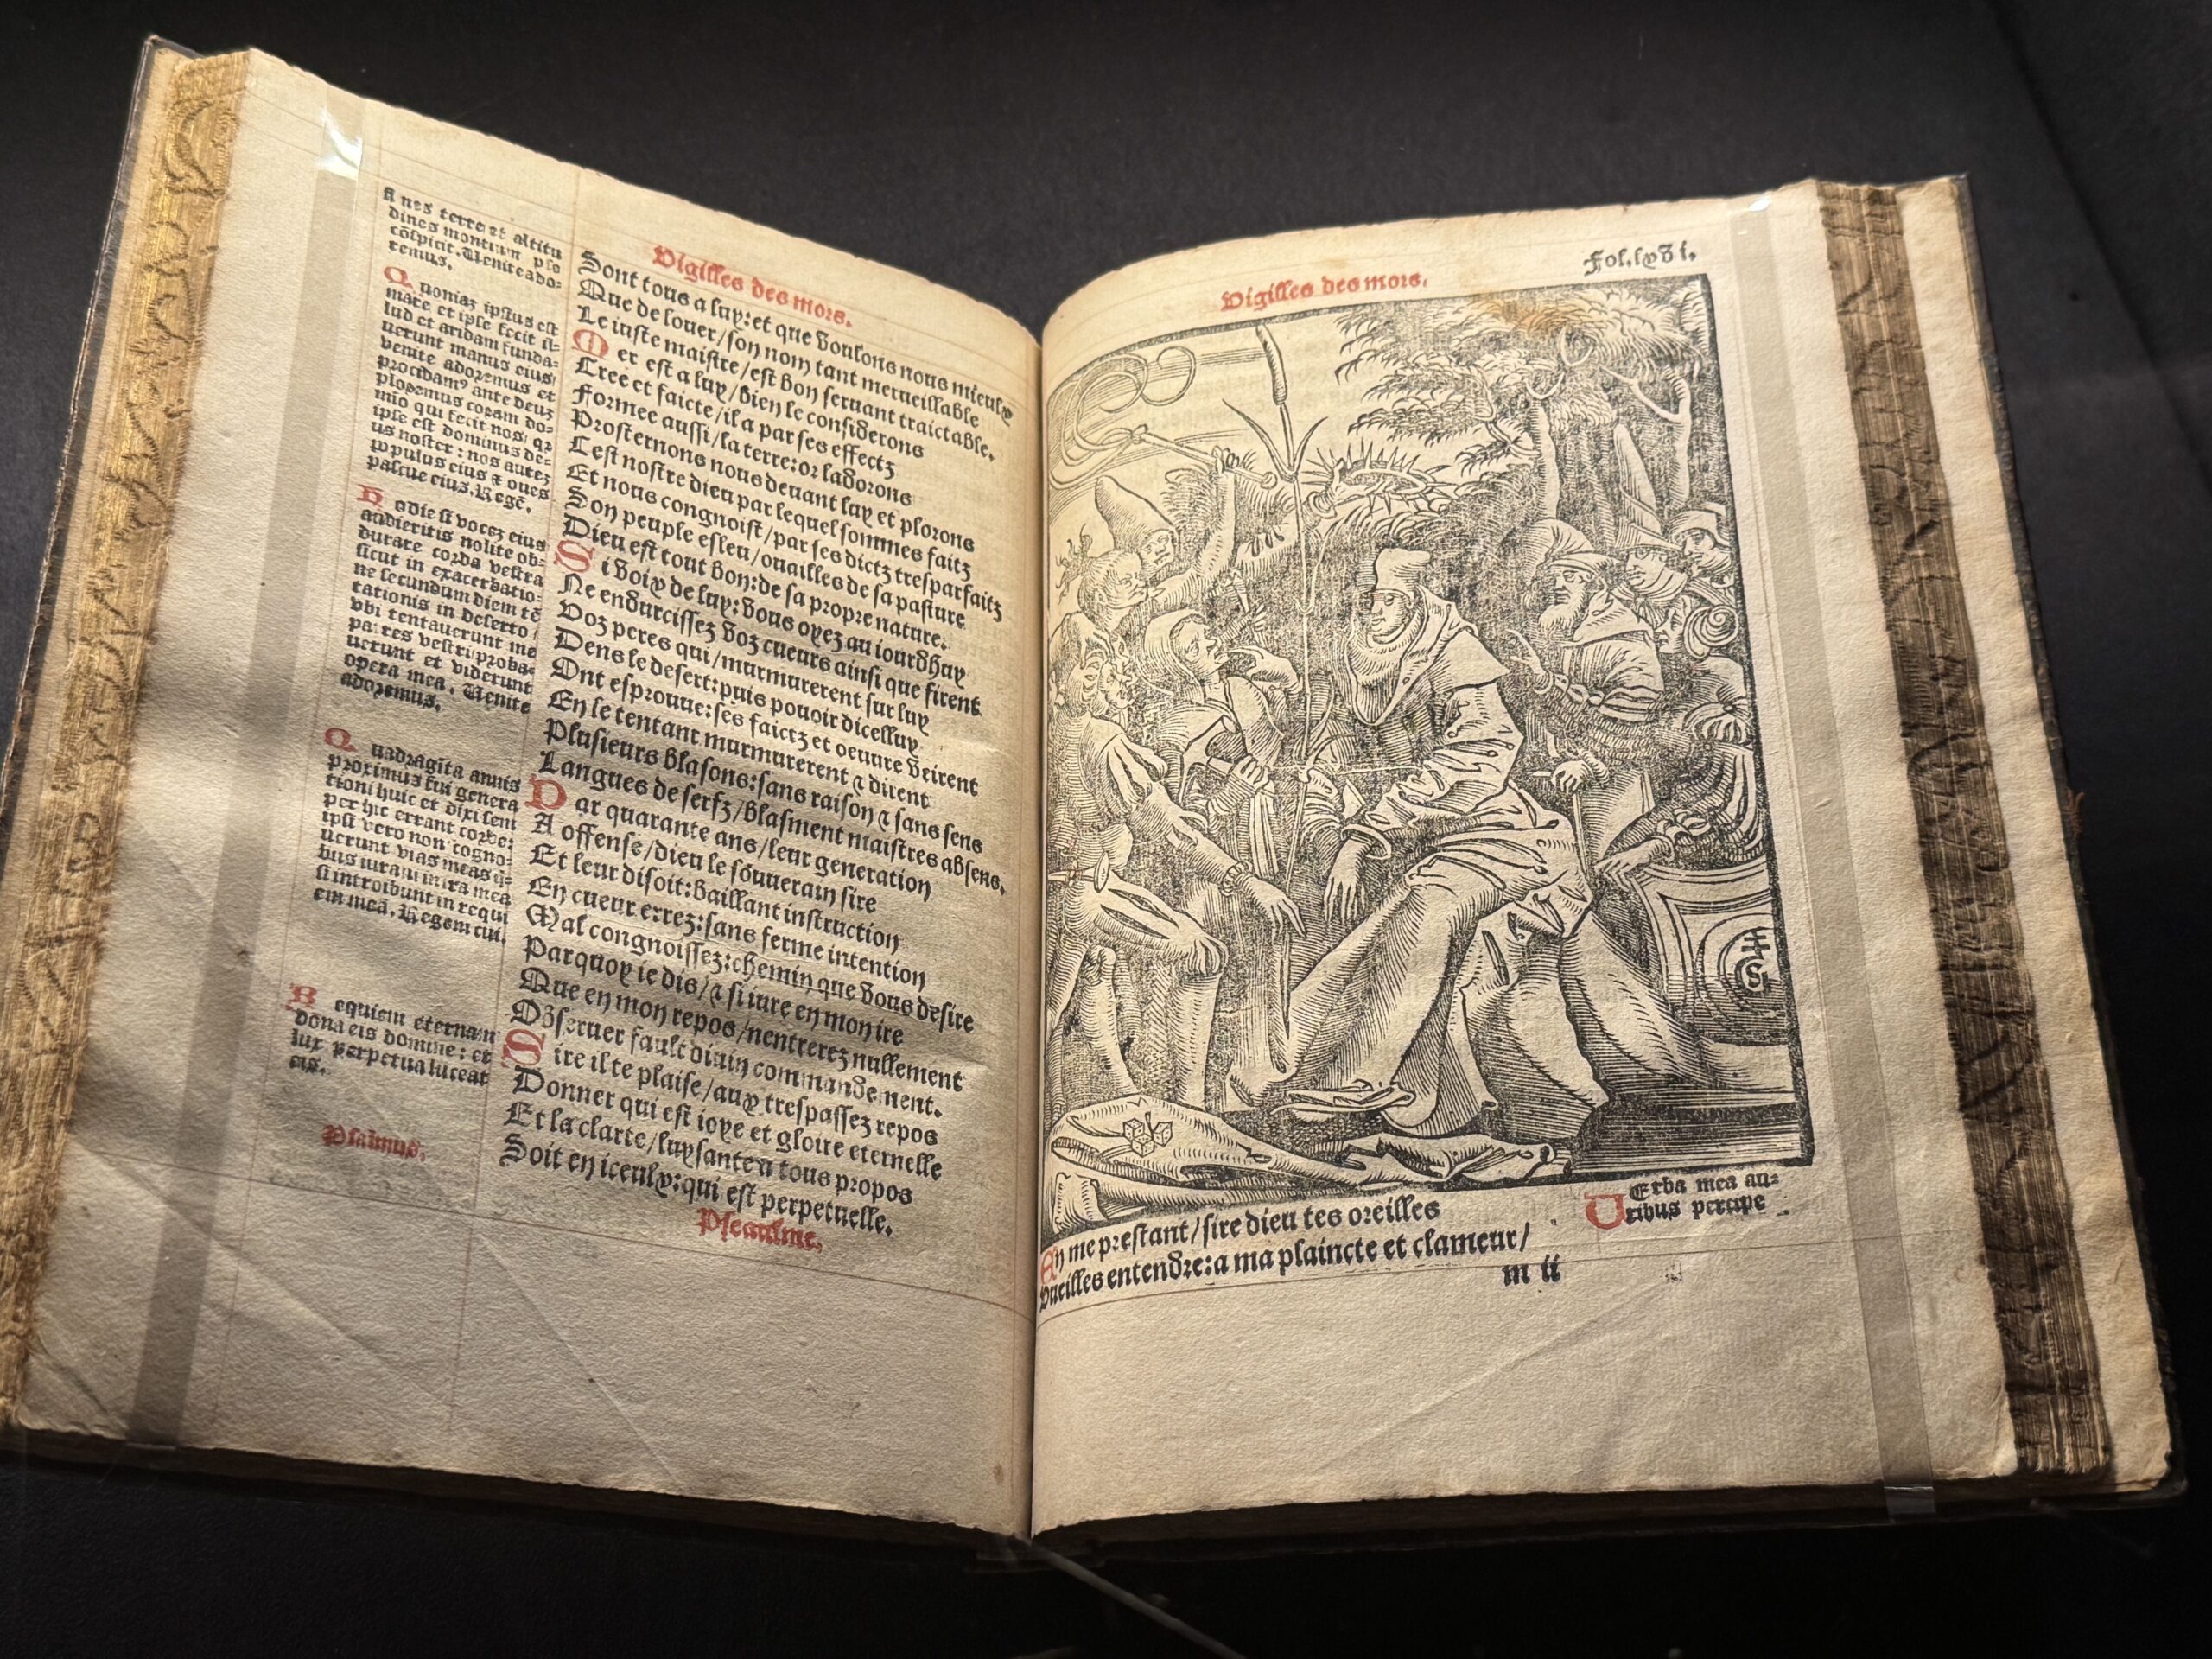 Vigilles des mors.
si nes terre et altitu
dines montium ipse
cōspicit. Venite ado-
remus.
Q uoniaz ipsius est
mare et ipse fecit il-
lud et aridam funda-
uerunt manus eius
venite adoremus et
procidam⁹ ante deuz
ploremus coram do-
mio qui fecit nos, qz
ipse est dominus de-
us noster: nos autez
populus eius & oues
pascue eius. Regē.
H odie si vocez eius
audieritis nolite ob-
durare corda vestra
sicut in exacerbatio-
ne secundum diem tē
tationis in deserto
vbi tentauerunt me
patres vestri proba-
uerunt et viderunt
opera mea. Venite
adoremus.
Q uadragīta annis
proximus fui genera
tioni huic et dixi sem
per hic errant corde:
ipsi vero non cogno-
uerunt vias meas q-
bus iuraui in ira mea
si introibunt in requi
em meā. Regem cui.
R equiem eternam
dona eis domine: et
lux perpetua luceat
eis.
Psalmus.
Sont tous a luy: et que voulons nous mieulx
Que de louer/son nom tant merueillable
Le iuste maistre/est bon seruant traictable.
M er est a luy/bien le considerons
Cree et faicte/il a par ses effectz
Formee aussi/la terre: or ladorons
Prosternons nous deuant luy et plorons
Cest nostre dieu par lequel sommes faitz
Et nous congnoist/par ses dictz tresparfaitz
Son peuple esleu/ouailles de sa pasture
Dieu est tout bon: de sa propre nature.
S i voix de luy: vous oyez au iourdhuy
Ne endurcissez voz cueurs ainsi que firent
Voz peres qui/murmurerent sur luy
Dens le desert: puis pouoir dicelluy
Ont esprouue: ses faictz et oeuure veirent
En le tentant murmurerent & dirent
Plusieurs blasons: sans raison & sans sens
Langues de serfz/blasment maistres absens.
P ar quarante ans/leur generation
A offense/dieu le souuerain sire
Et leur disoit: baillant instruction
En cueur errez: sans ferme intention
Mal congnoissez: chemin que vous desire
Parquoy ie dis/& si iure en mon ire
Que en mon repos/nentrerez nullement
Obseruer fault diuin commandement.
S ire il te plaise/aux trespassez repos
Donner qui est ioye et gloire eternelle
Et la clarte/luysante a tous propos
Soit en iceulx: qui est perpetuelle.
Pseaulme.
Vigilles des mors.
Fol. lxvi.
En me prestant/sire dieu tes oreilles
Vueilles entendre: a ma plaincte et clameur/
m ii
V Erba mea au-
ribus percipe